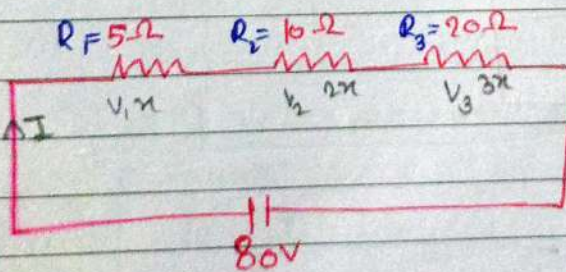 R₁=5Ω R₂=10Ω R₃=20Ω
V₁x V₂ 2x V₃ 3x
I
80V